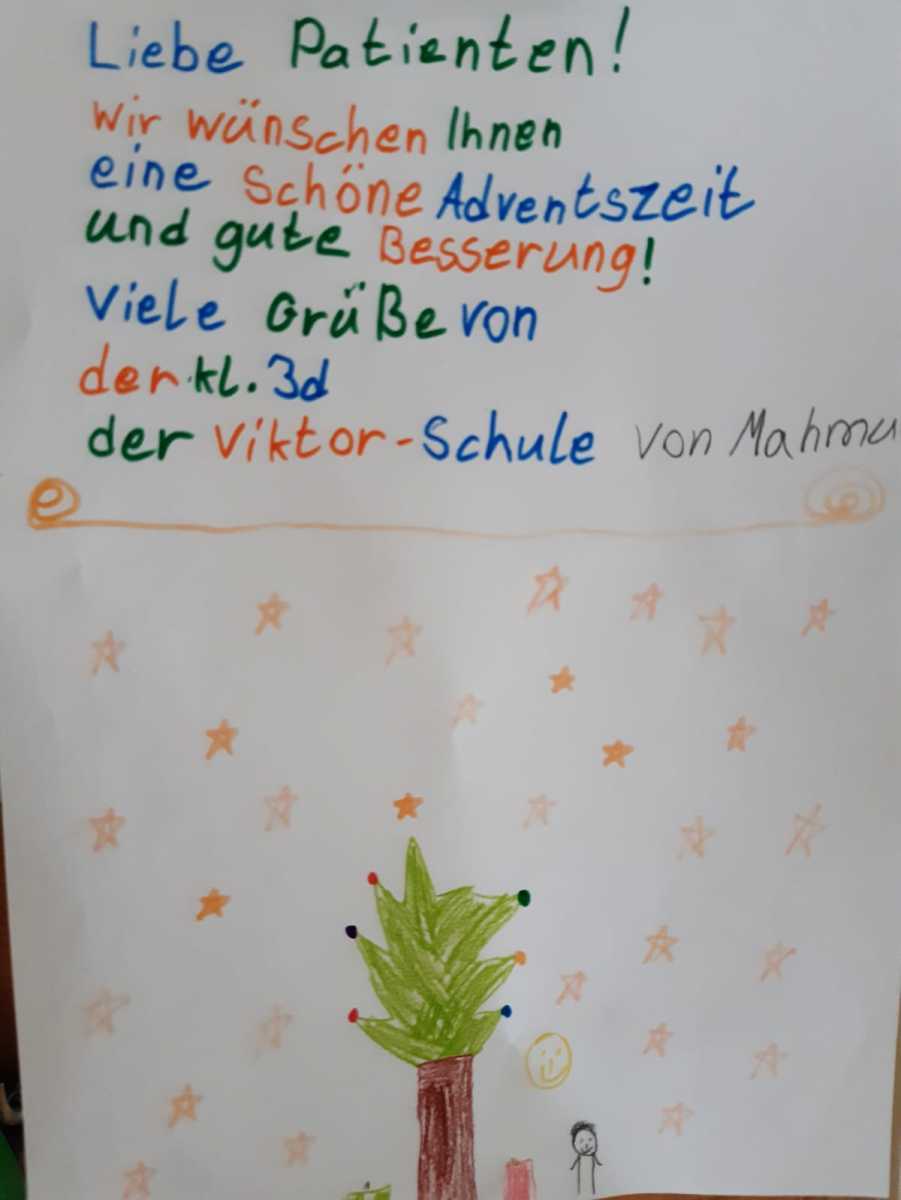 Liebe Patienten!
Wir wünschen Ihnen
eine schöne Adventszeit
und gute Besserung!
Viele Grüße von
der kl. 3d
der Viktor-Schule von Mahmu